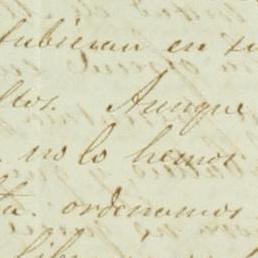 tubieran en su
llos. Aunque
no lo hemos
ta. ordenamos